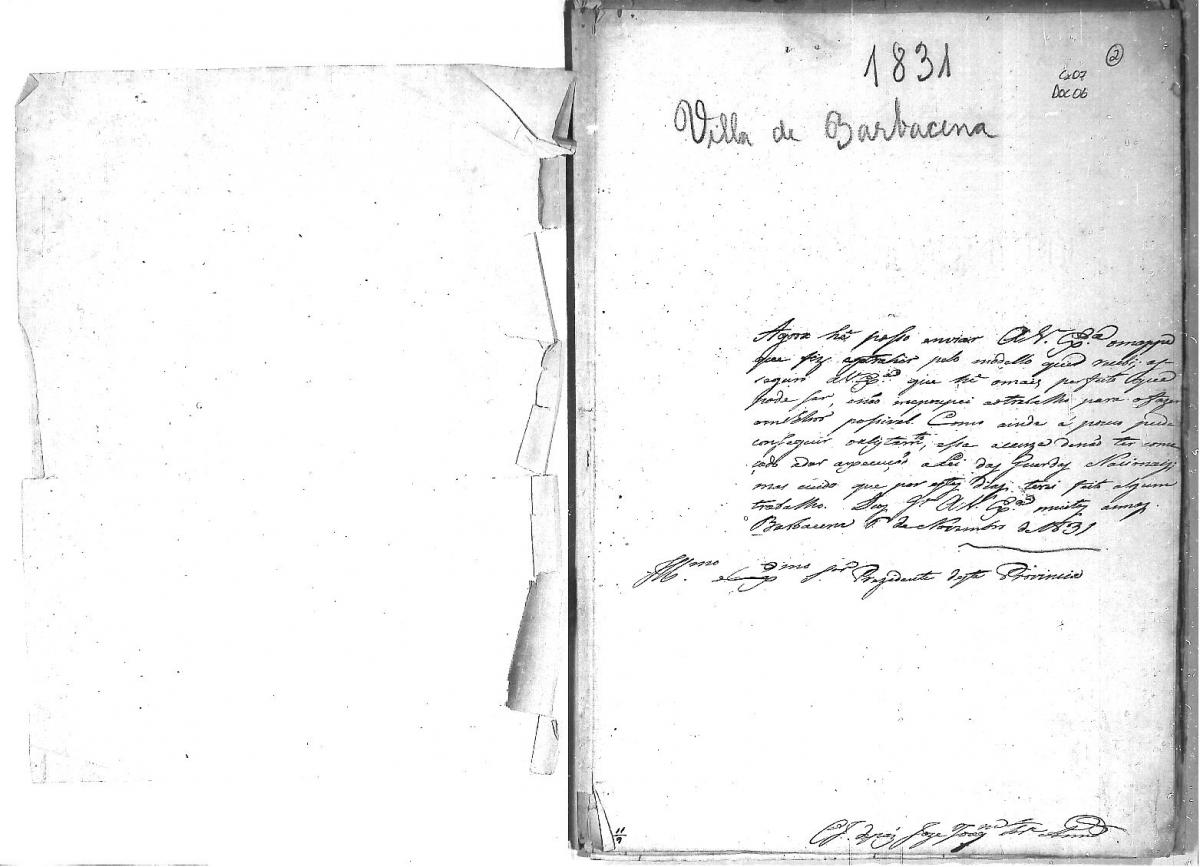 1831
2
Cx 07
Doc 06
Villa de Barbacena
Agora hé posso enviar A V. Ex.ª omappa
que fiz extrahir pelo modello que recebi; as
seguro a V. Ex.ª que hé o mais perfeito que
pode ser, e não me poupei a trabalho para o fazer
o milhor possivel. Como ainda á pouco pude
conseguir, esta a cauza de não ter come
çado a dar a execução a Lei das Guardas Nacionais;
mas cuido que por estes dias terei feito algum
trabalho. Deos G.e A V. Ex.ª muitos annos.
Barbacena de Novembro de 1831
Ill.mo e Ex.mo Snr. Prezidente desta Provincia
Juiz de paz Joze
11/9